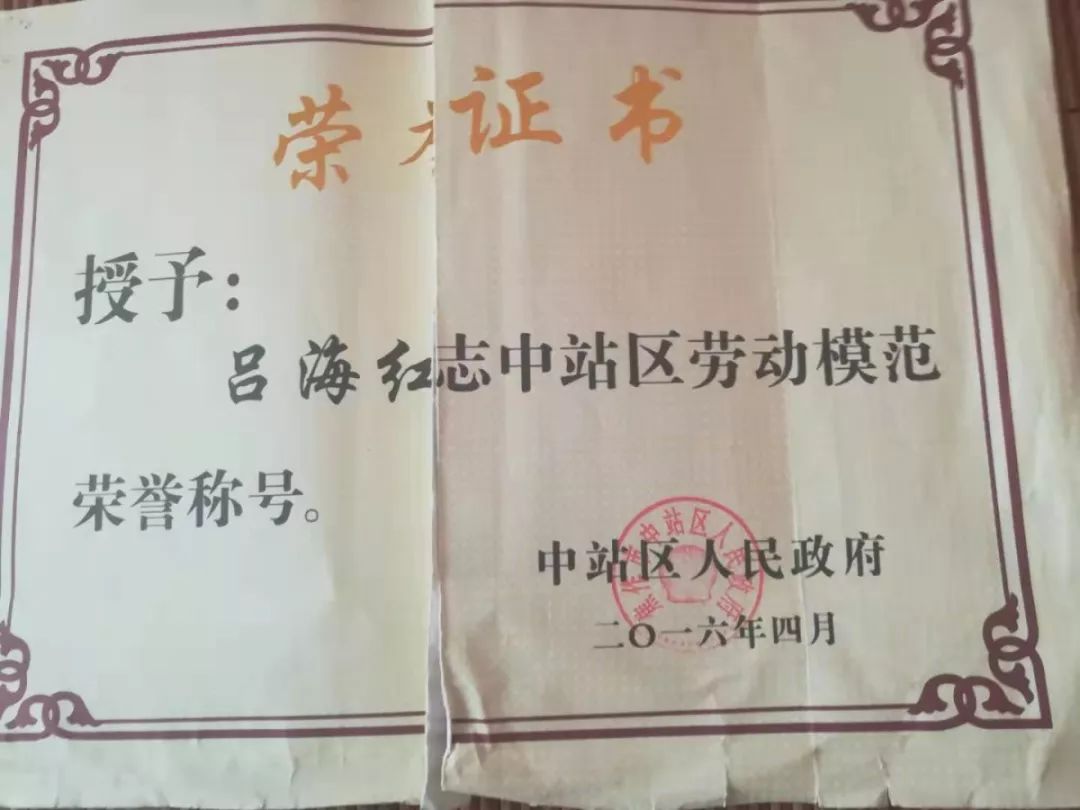 荣 证书
授予：
吕海红志中站区劳动模范
荣誉称号。
中站区人民政府
二〇一六年四月
焦作市中站区人民政府